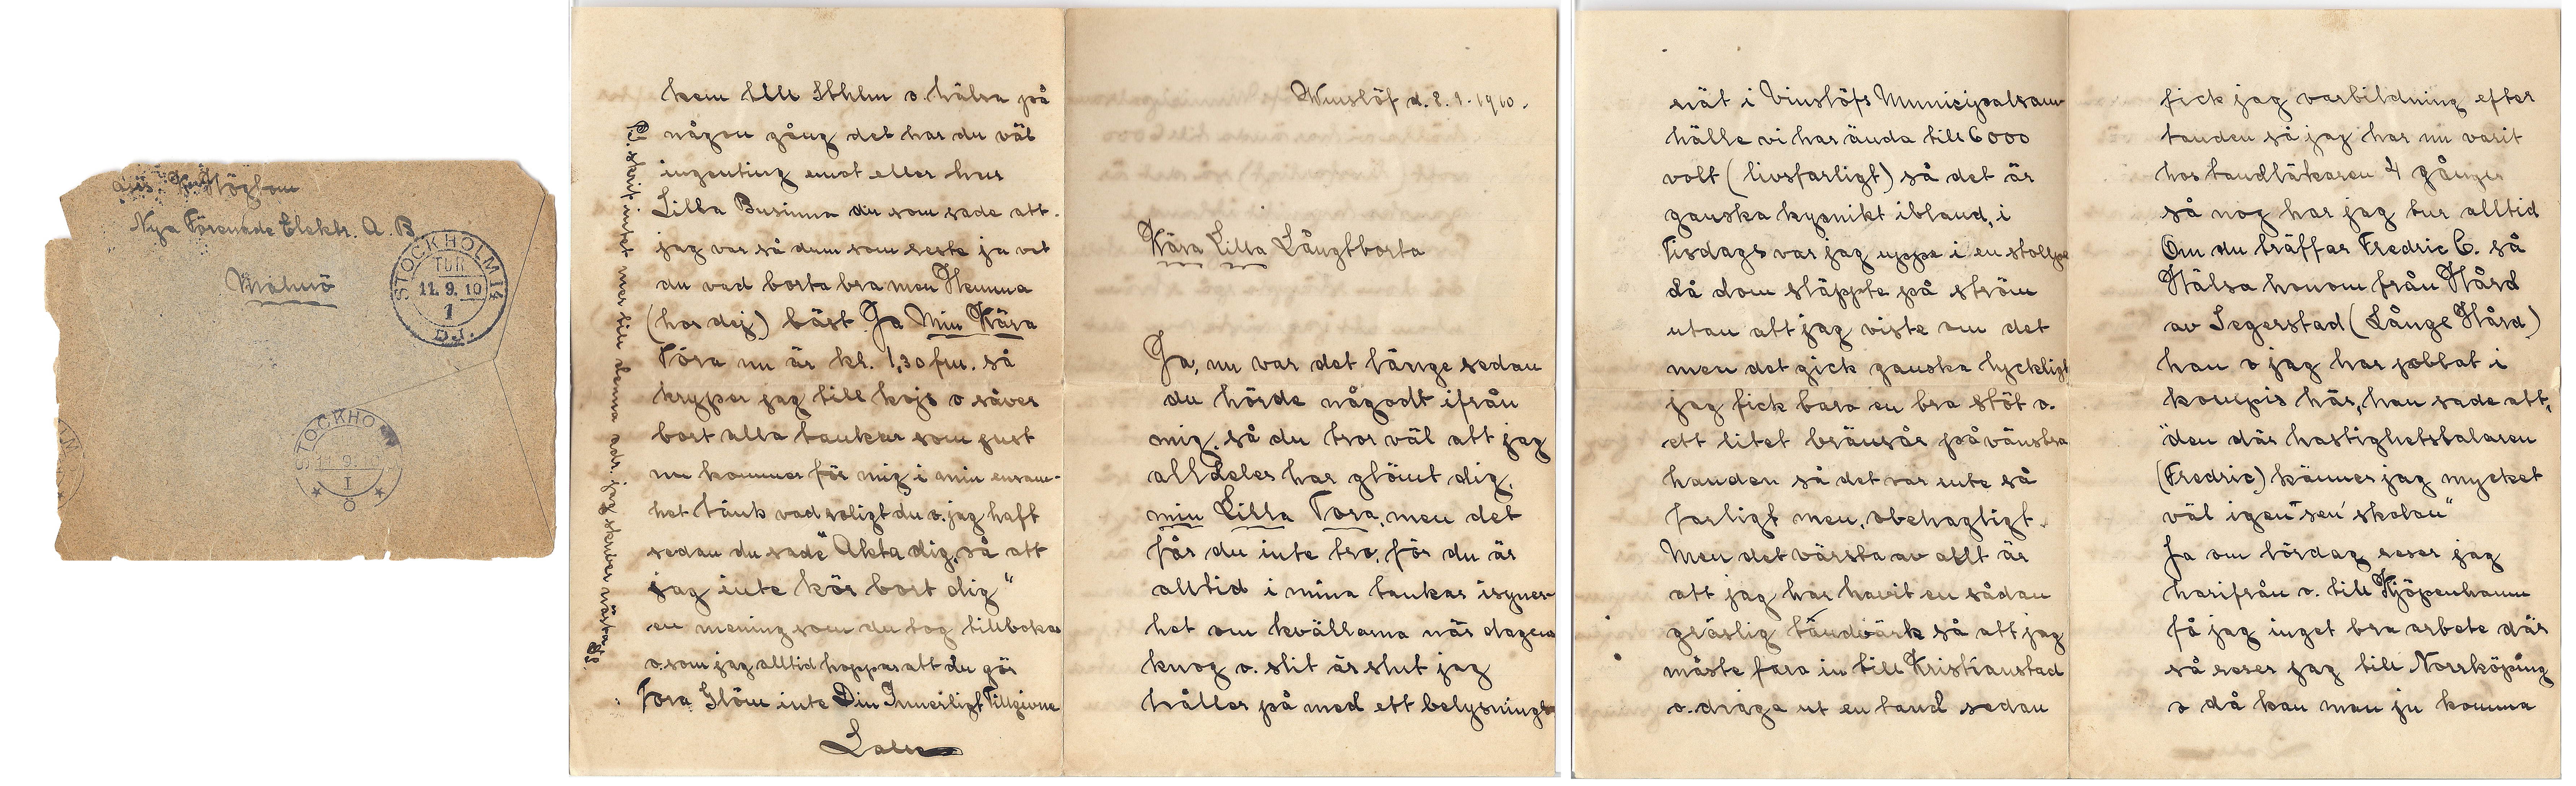 adr. Höglom
Nya Förenade Elektr. A. B.
Malmö
STOCKHOLM 14
TUR
11. 9. 10
1
D.J.
STOCKHO
11. 9. 10
I
Ö
Winslöf d. 8. 9. 1910.
Kära Lilla Långtborta
Ja, nu var det länge sedan
du hörde någodt ifrån
mig, så du tror väl att jag
alldeles har glömt dig,
min Lilla Tora, men det
får du inte tro, för du är
alltid i mina tankar isyner-
het om kvällarna när dagens
knog o. slit är slut jag
håller på med ett belysnings
nät i Vinslöfs Municipalsam-
hälle vi har ända till 6000
volt (livsfarligt) så det är
ganska kysnikt ibland, i
Tisdags var jag uppe i en stolpe
då dom släppte på ström
utan att jag viste om det
men det gick ganska lyckligt
jag fick bara en bra stöt o.
ett litet brännsår på vänstra
handen så det var inte så
farligt men, obehagligt.
Men det värsta av allt är
att jag har havit en sådan
gräslig tandvärk så att jag
måste fara in till Kristianstad
o. draga ut en tand sedan
fick jag varbildning efter
tanden så jag har nu varit
hos tandläkaren 4 gånger
så nog har jag tur alltid
Om du träffar Fredric C. så
Hälsa honom från Hård
av Segerstad (Långe Hård)
han o jag har jobbat i
kompis här, han sade att,
"den där hastighetstalaren
(Fredric) känner jag mycket
väl igen "sen' skolan"
Ja om lördag reser jag
härifrån o. till Kjöpenhamn
få jag inget bra arbete där
så reser jag till Norrköping
o då kan man ju komma
hem till Sthlm o. hälsa på
någon gång det har du väl
ingenting emot eller hur
Lilla Busunna du som sade att
jag var så dum som reste ju vet
du vad borta bra men Hemma
(hos dej) bäst Ja Min Kära
Tora nu är kl. 1,30 fm. så
kryper jag till kojs o såver
bort alla tankar som just
nu kommer för mig i min ensam-
het tänk vad roligt du o. jag haft
sedan du sade "Akta dig, så att
jag inte kör bort dig"
en mening som du tog tillbaka
o. som jag alltid hoppas att du gör
Tora Glöm inte Din Innerligt Tillgivne
Lalle
P.S. skrif intet mer till denna adr. jag skriver nästa
DS.